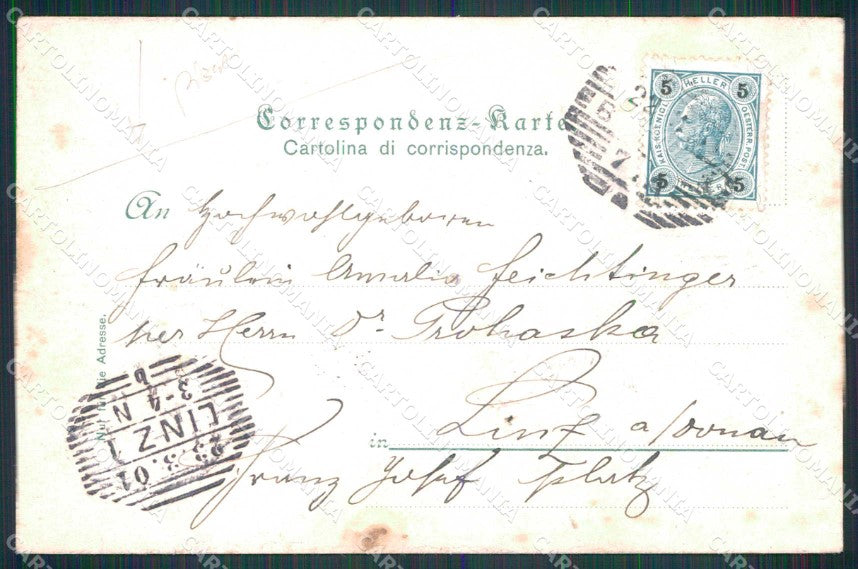 Correspondenz-Karte
Cartolina di corrispondenza.
5 HELLER 5
KAIS. KOENIGL. OESTERR. POST
5 5
24
5
7
An Hochwohlgeboren
Fräulein Amalie Feichtinger
per Herrn Dr Prohaska
in Linz a/Donau
Franz Josef Platz
Nur für die Adresse.
LINZ 1
23.3.01
3-4 N
b
CARTOLINOMANIA